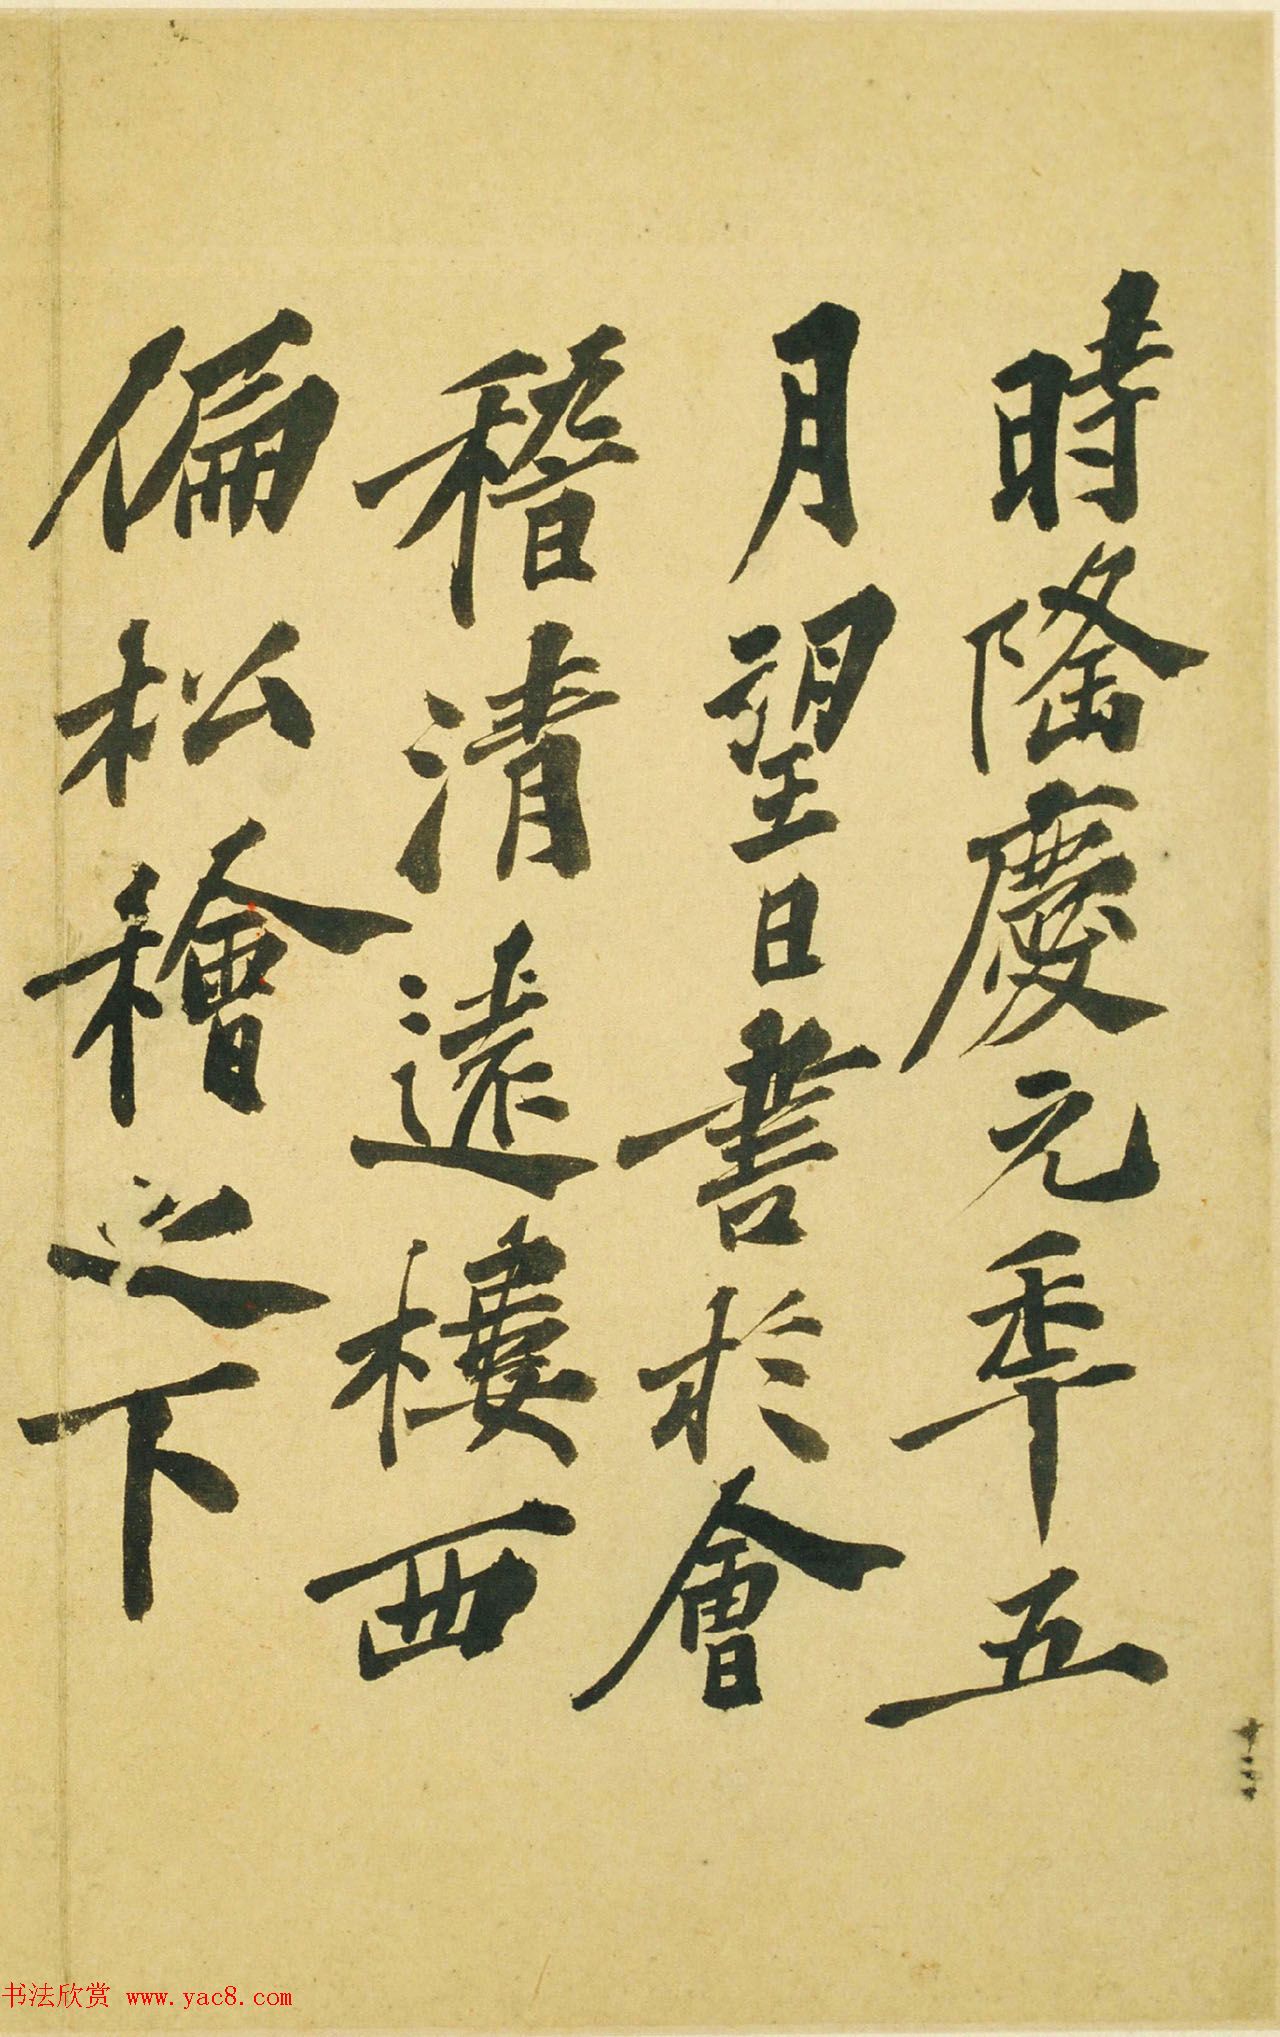 時隆慶元年五
月望日書於會
稽清遠樓西
偏松檜之下
书法欣赏 www.yac8.com